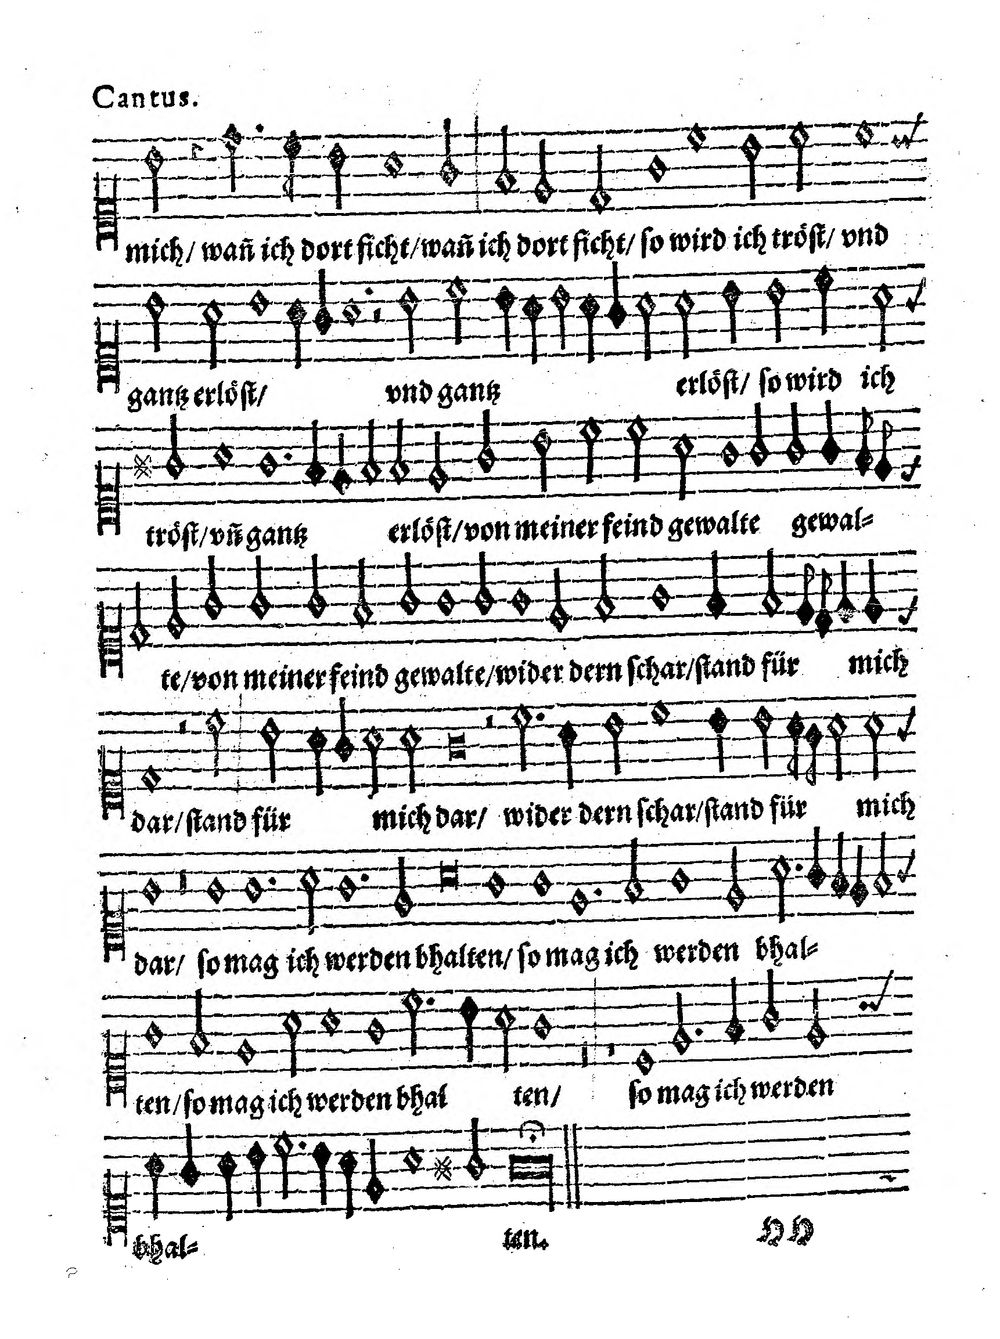 Cantus.
mich/ wañ ich dort sicht/wañ ich dort sicht/ so wird ich tröst/ vnd
gantz erlöst/ vnd gantz erlöst/ so wird ich
tröst/vñ gantz erlöst/von meiner feind gewalte gewal=
te/von meiner feind gewalte/wider dern schar/stand für mich
dar/stand für mich dar/ wider dern schar/stand für mich
dar/ so mag ich werden bhalten/ so mag ich werden bhal=
ten/so mag ich werden bhal ten/ so mag ich werden
bhal= ten.
HH